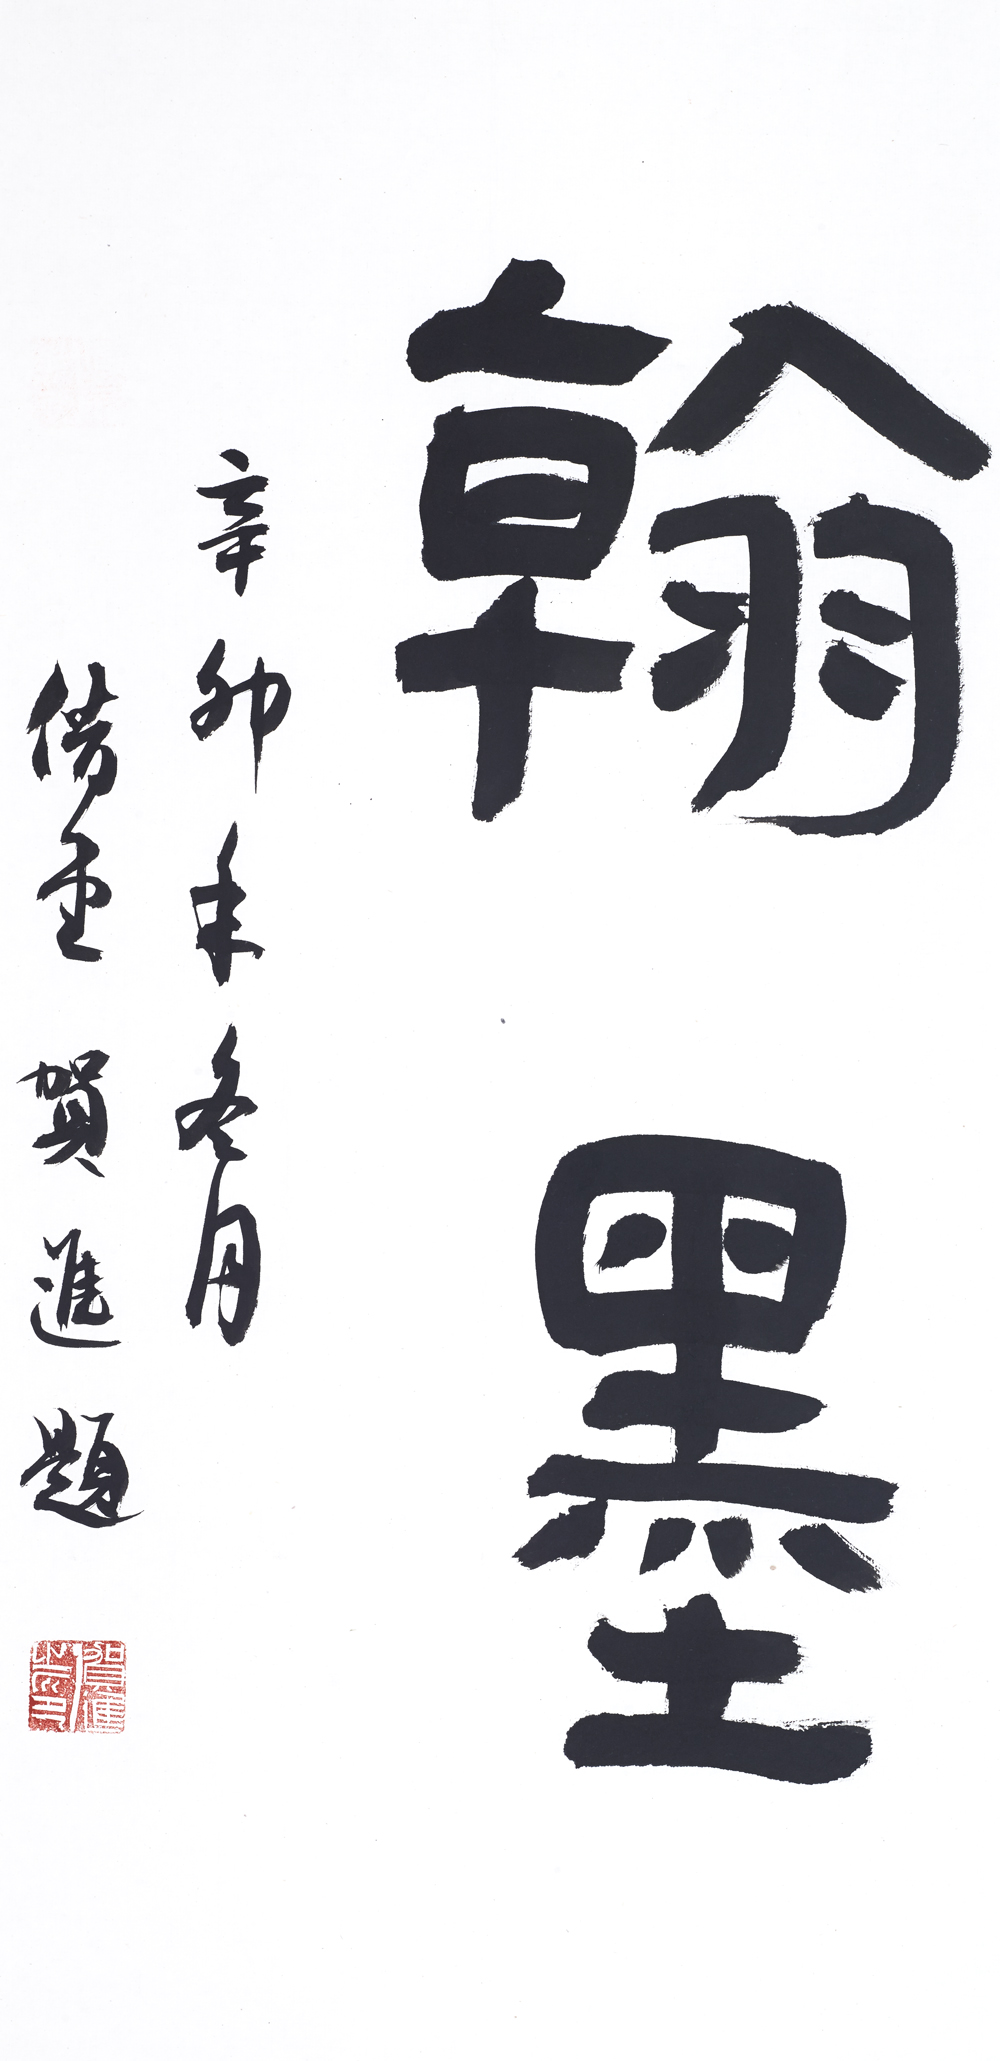 翰墨
辛卯年冬月
借 賀進題
賀進之印